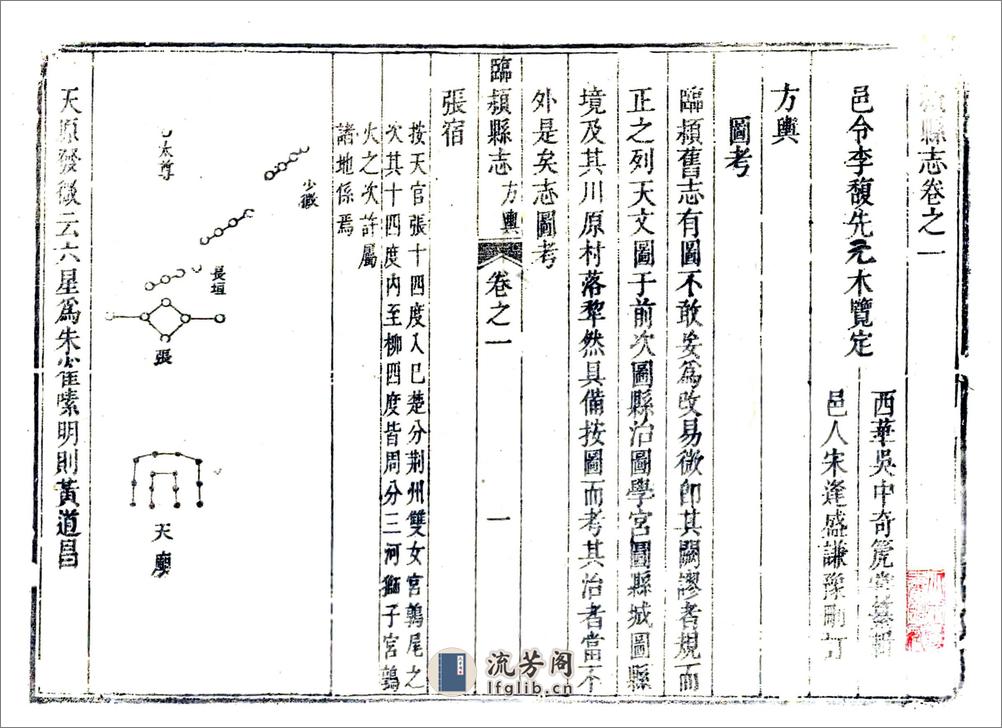 縣志卷之一
邑令李馥先元木覽定
西華吳中奇箎
邑人宋逢盛謙豫刪訂
方輿
圖考
臨潁舊志有圖不敢妄爲改易微卽其闕謬者規而
正之列天文圖于前次圖縣治圖學宮圖縣城圖縣
境及其川原村落犂然具備按圖而考其治者當不
外是矣志圖考
臨潁縣志
方輿
卷之一
一
張宿
按天官張十四度入巳楚分荆州雙女宮鶉尾之
次其十四度內至柳四度皆周分三河獅子宮鶉
火之次許屬
諸地係焉
少微
長垣
張
太尊
天廟
天原發微云六星爲朱雀嗉明則黃道昌
流芳阁
lfglib.cn